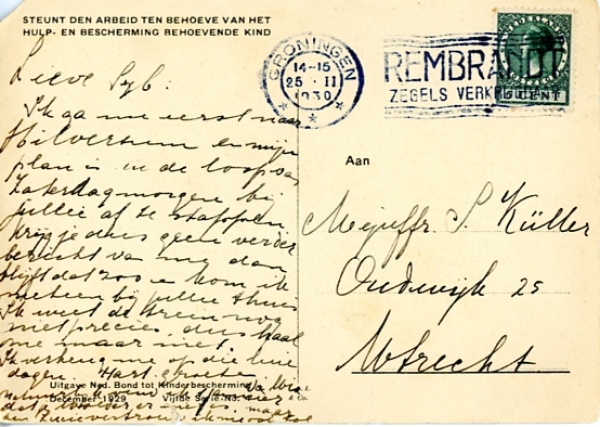 STEUNT DEN ARBEID TEN BEHOEVE VAN HET
HULP- EN BESCHERMING BEHOEVENDE KIND
GRONINGEN
14-15
25 II
1930
REMBRANDT
ZEGELS
NEDERLAND
CENT
Lieve Syb:
Ik ga nu eerst naar
Hilversum en mijn
plan is in de loop van
Zaterdagmorgen bij
jullie af te stappen
Krijg je dus geen verder
bericht van mij dan
blijft dat zoo en kom ik
meteen bij jullie thuis
Ik weet de trein nog
niet precies, dus haal
me maar niet.
Ik verheug me op die
dagen. Hart. groeten
Aan
Mejuffr. S. Küller
Oudwijk 25
Utrecht
Uitgave Ned. Bond tot Kinderbescherming
December 1929 Vijfde Serie-No.